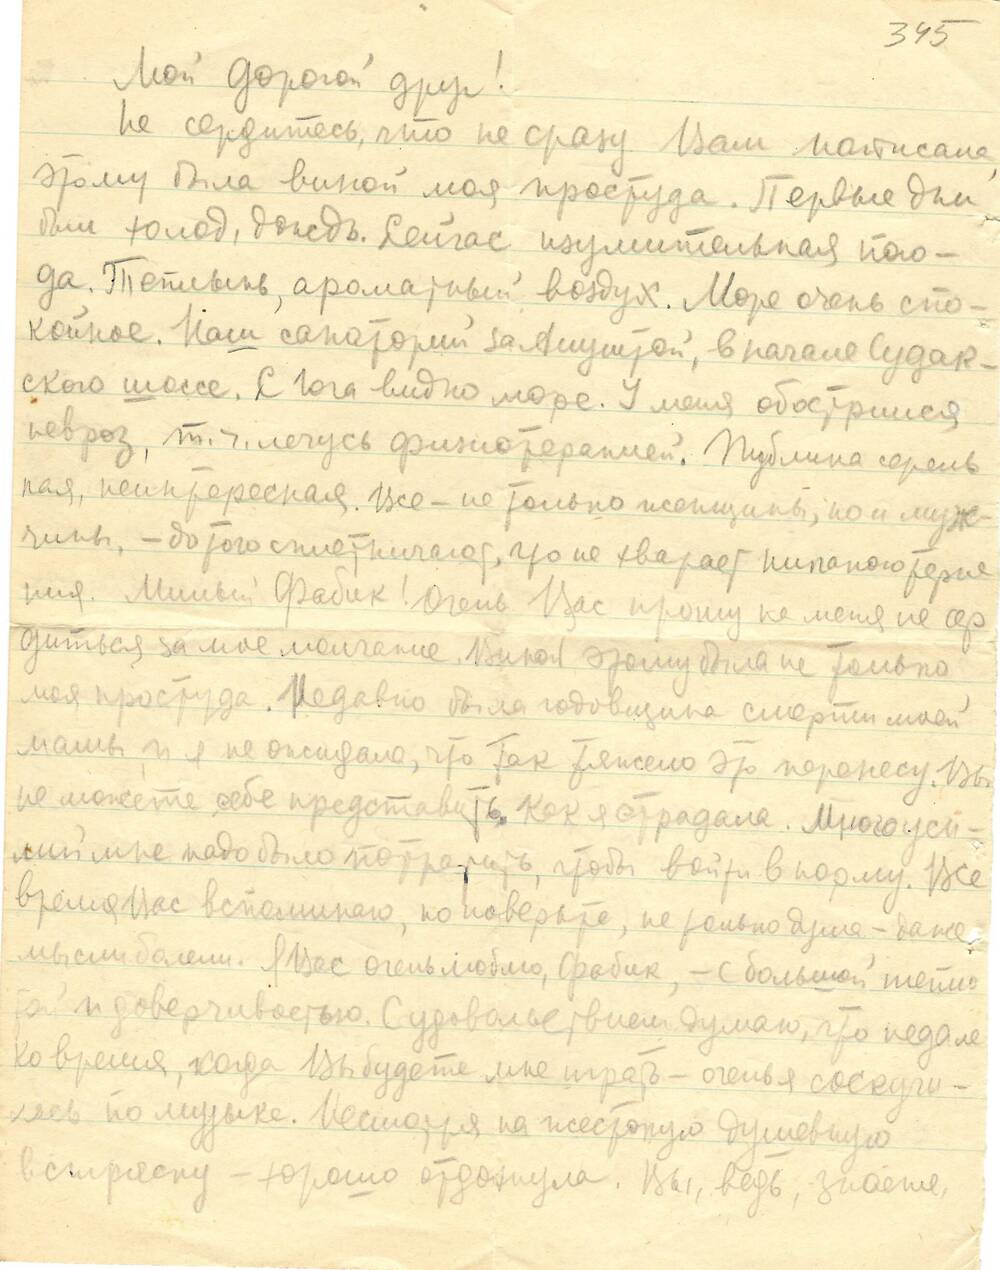 345
Мой дорогой друг!
Не сердитесь, что не сразу Вам написала,
этому была виной моя простуда. Первые дни
был холод, дождь. Сейчас изумительная пого-
да. Теплынь, ароматный воздух. Море очень спо-
койное. Наш санаторий за Алуштой, в начале Судак-
ского шоссе. С юга видно море. У меня обострился
невроз, т.ч. лечусь физиотерапией. Публика серень
кая, неинтересная. Все – не только женщины, но и муж-
чины, – до того сплетничают, что не хватает никакого терпе
ния. Милый Фабик! Очень Вас прошу на меня не сер
диться за мое молчание. Виной этому была не только
моя простуда. Недавно была годовщина смерти моей
мамы и я не ожидала, что так тяжело это перенесу. Вы
не можете себе представить, как я страдала. Много уси-
лий мне надо было потратить, чтобы войти в норму. Все
время Вас вспоминаю, но поверьте, не только душа – даже
мысли болели. Я Вас очень люблю, Фабик, – с большой тепло
той и доверчивостью. С удовольствием думаю, что недале
ко время, когда Вы будете мне играть – очень я соскучи-
лась по музыке. Несмотря на жестокую душевную
встряску – хорошо отдохнула. Вы, ведь, знаете,